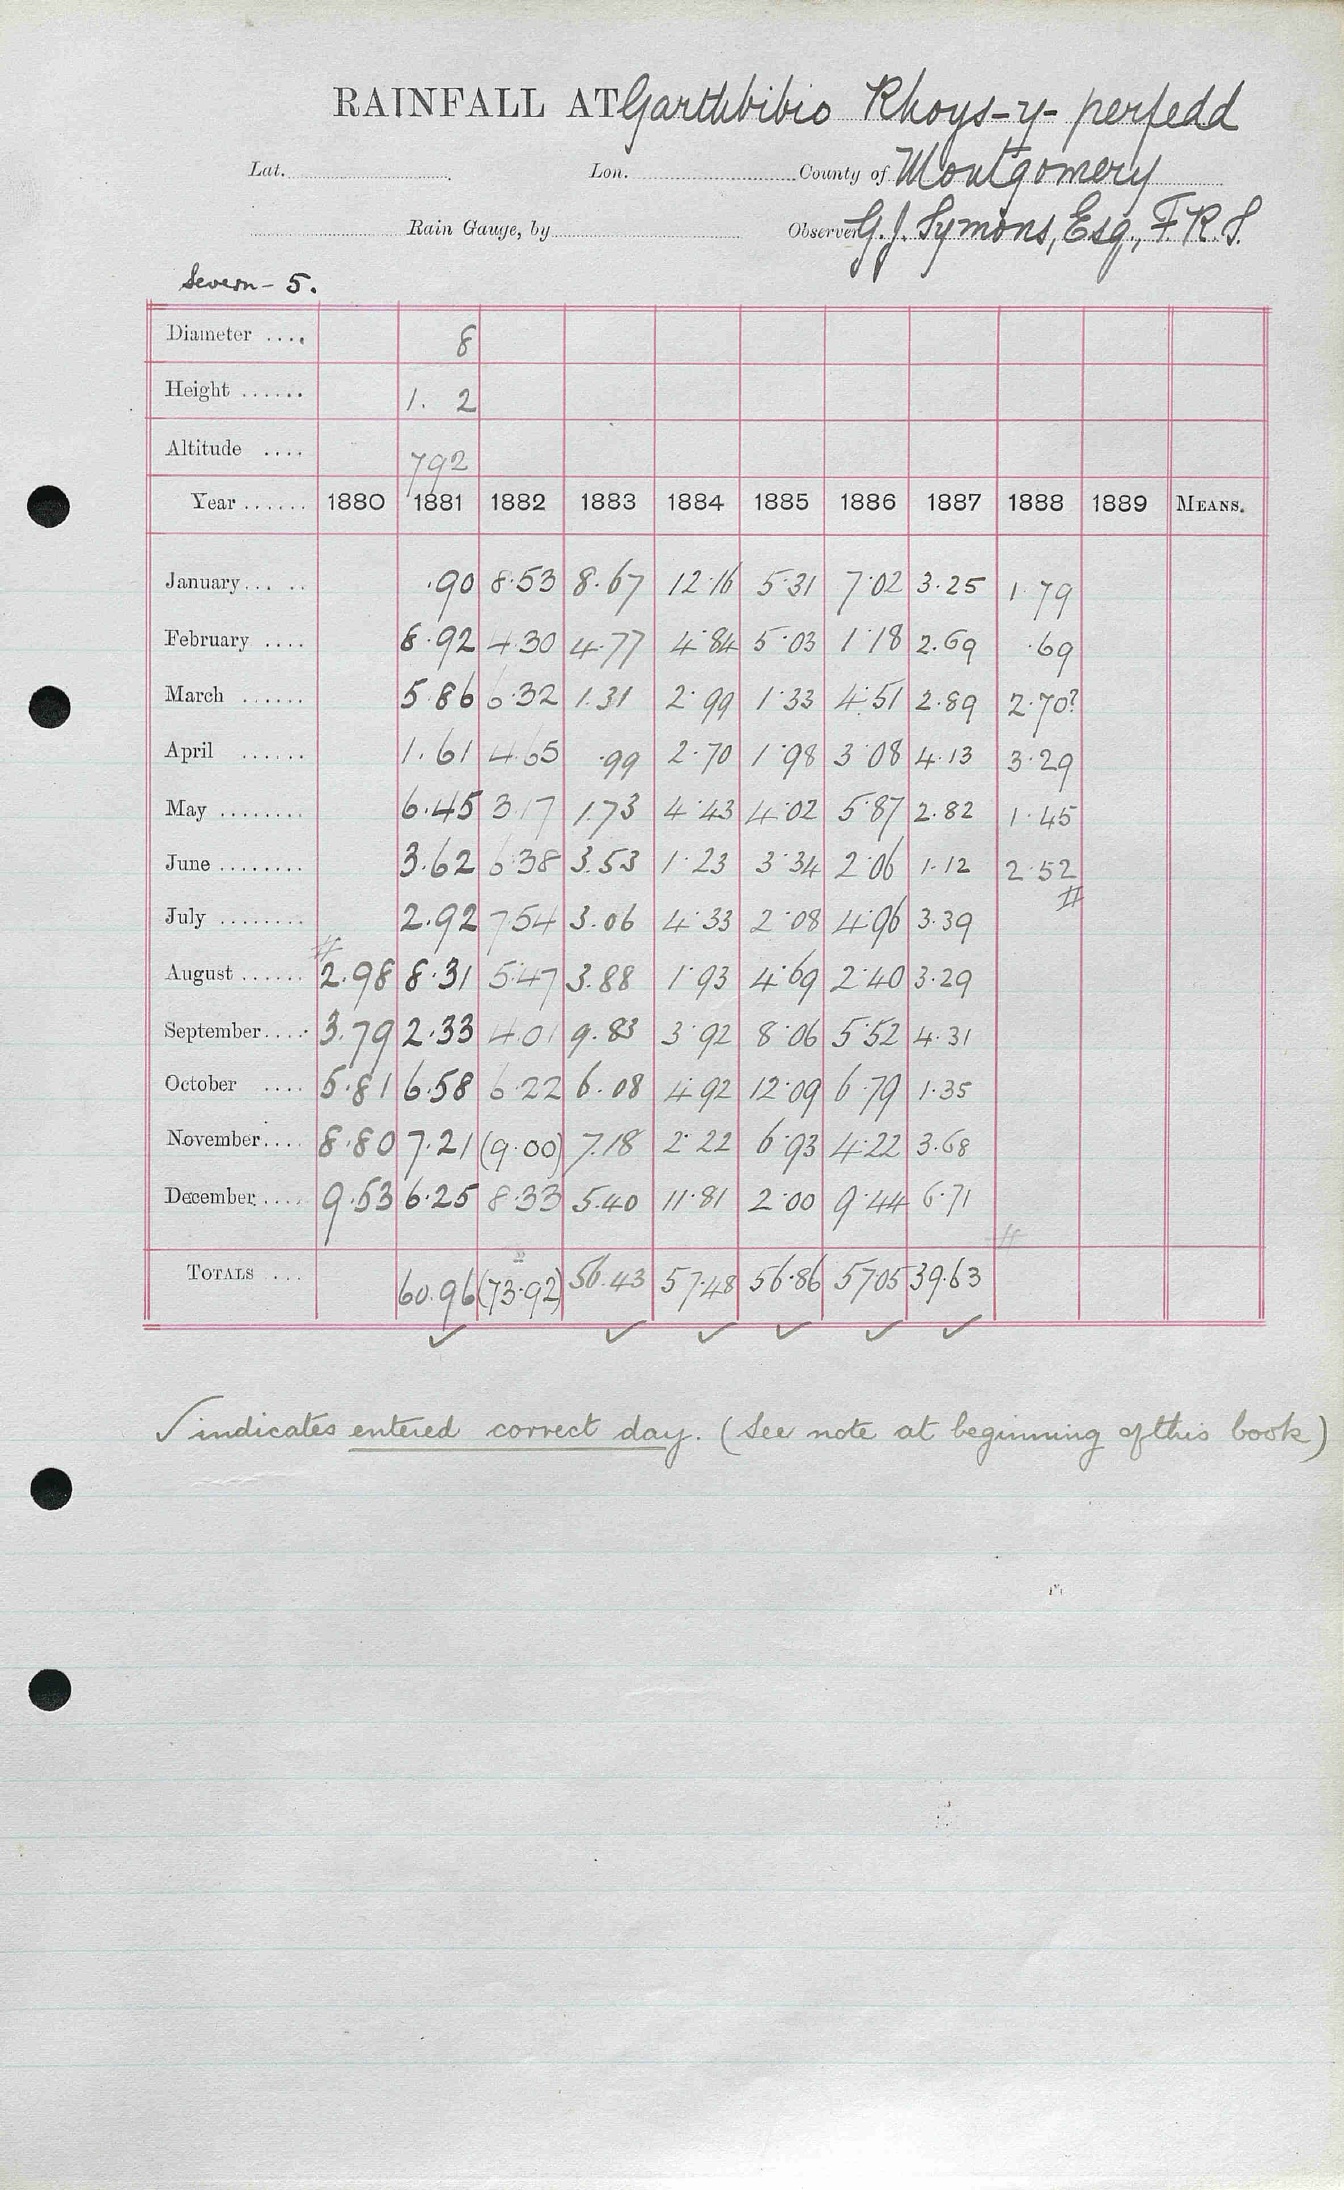 RAINFALL AT Garthbibio Rhoys-y-perfedd
Lat. Lon. County of Montgomery
Rain Gauge, by Observer G.J. Symons, Esq., F.R.S.
Severn - 5.
Diameter .... 8
Height ...... 1. 2
Altitude .... 792
Year ...... 1880 1881 1882 1883 1884 1885 1886 1887 1888 1889 MEANS.
January... .. .90 8.53 8.67 12.16 5.31 7.02 3.25 1.79
February .... 8.92 4.30 4.77 4.84 5.03 1.18 2.69 .69
March ...... 5.86 6.32 1.31 2.99 1.33 4.51 2.89 2.70?
April ...... 1.61 4.65 .99 2.70 1.98 3.08 4.13 3.29
May ........ 6.45 3.17 1.73 4.43 4.02 5.87 2.82 1.45
June ........ 3.62 6.38 3.53 1.23 3.34 2.06 1.12 2.52
July ........ 2.92 7.54 3.06 4.33 2.08 4.96 3.39
August ...... 2.98 8.31 5.47 3.88 1.93 4.69 2.40 3.29
September.... 3.79 2.33 4.01 9.83 3.92 8.06 5.52 4.31
October .... 5.81 6.58 6.22 6.08 4.92 12.09 6.79 1.35
November.... 8.80 7.21 (9.00) 7.18 2.22 6.93 4.22 3.68
December.... 9.53 6.25 8.33 5.40 11.81 2.00 9.44 6.71
TOTALS ... 60.96 (73.92) 56.43 57.48 56.86 57.05 39.63
✓ ✓ ✓ ✓ ✓ ✓
✓ indicates entered correct day. (See note at beginning of this book)